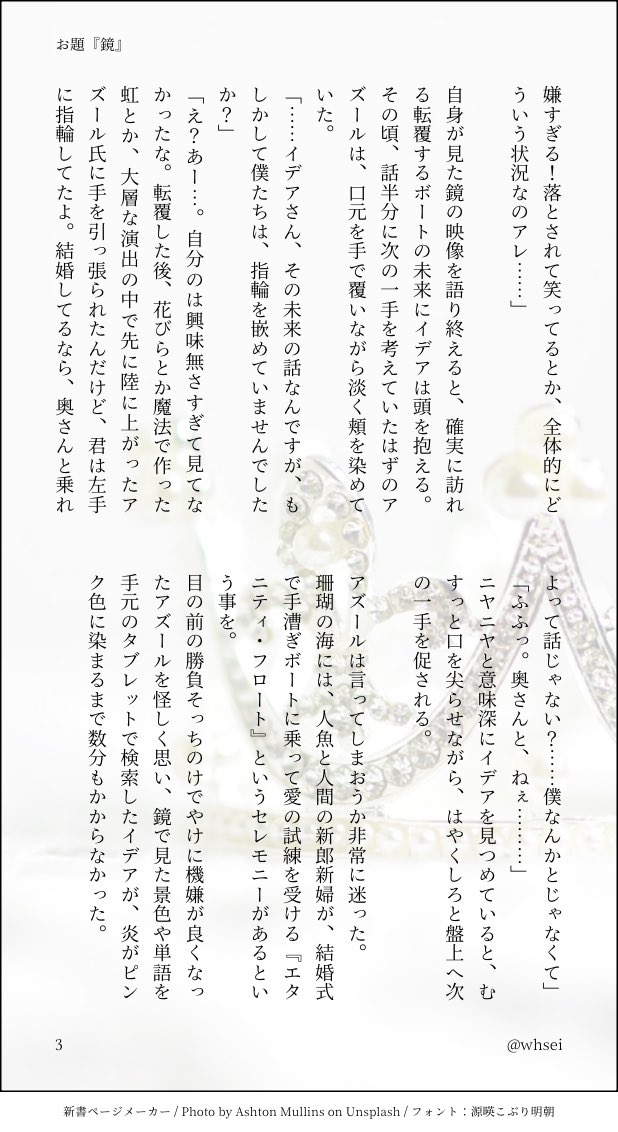 お題『鏡』
嫌すぎる！落とされて笑ってるとか、全体的にど
ういう状況なのアレ……」
自身が見た鏡の映像を語り終えると、確実に訪れ
る転覆するボートの未来にイデアは頭を抱える。
その頃、話半分に次の一手を考えていたはずのア
ズールは、口元を手で覆いながら淡く頬を染めて
いた。
「……イデアさん、その未来の話なんですが、も
しかして僕たちは、指輪を嵌めていませんでした
か？」
「え？あー…。自分のは興味無さすぎて見てな
かったな。転覆した後、花びらとか魔法で作った
虹とか、大層な演出の中で先に陸に上がったア
ズール氏に手を引っ張られたんだけど、君は左手
に指輪してたよ。結婚してるなら、奥さんと乗れ
よって話じゃない？……僕なんかとじゃなくて」
「ふふっ。奥さんと、ねぇ………」
ニヤニヤと意味深にイデアを見つめていると、む
すっと口を尖らせながら、はやくしろと盤上へ次
の一手を促される。
アズールは言ってしまおうか非常に迷った。
珊瑚の海には、人魚と人間の新郎新婦が、結婚式
で手漕ぎボートに乗って愛の試練を受ける『エタ
ニティ・フロート』というセレモニーがあるとい
う事を。
目の前の勝負そっちのけでやけに機嫌が良くなっ
たアズールを怪しく思い、鏡で見た景色や単語を
手元のタブレットで検索したイデアが、炎がピン
ク色に染まるまで数分もかからなかった。
3
@whsei
新書ページメーカー / Photo by Ashton Mullins on Unsplash / フォント：源暎こぶり明朝